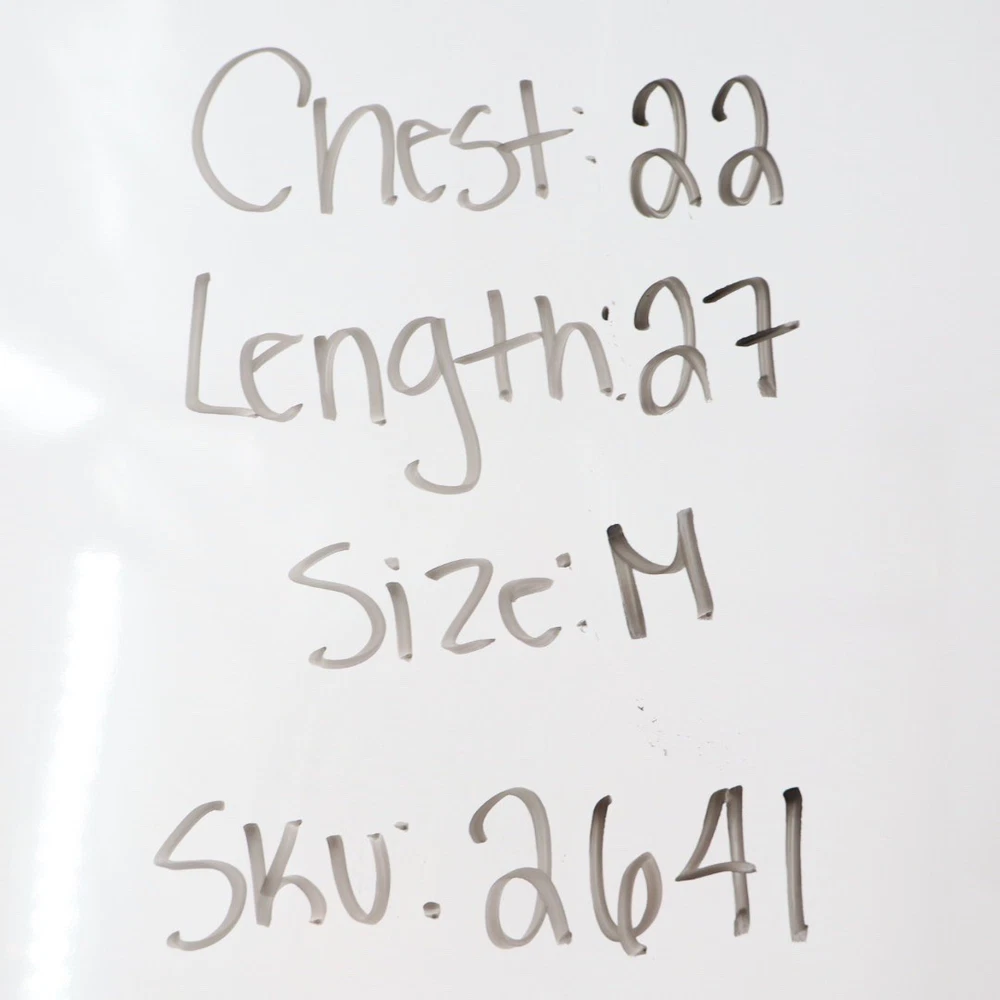 Chest: 22
Length: 27
Size: M
SKU: 2641